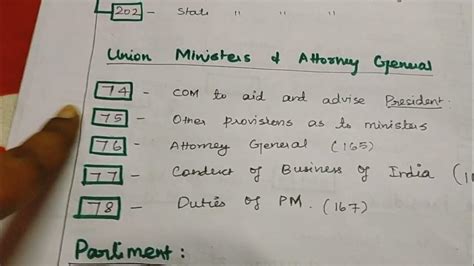 202 - State " " "
Union Ministers & Attorney General
74 - COM to aid and advise President.
75 - Other provisions as to ministers
76 - Attorney General (165)
77 - Conduct of Business of India (
78 - Duties of PM. (167)
Parliment: